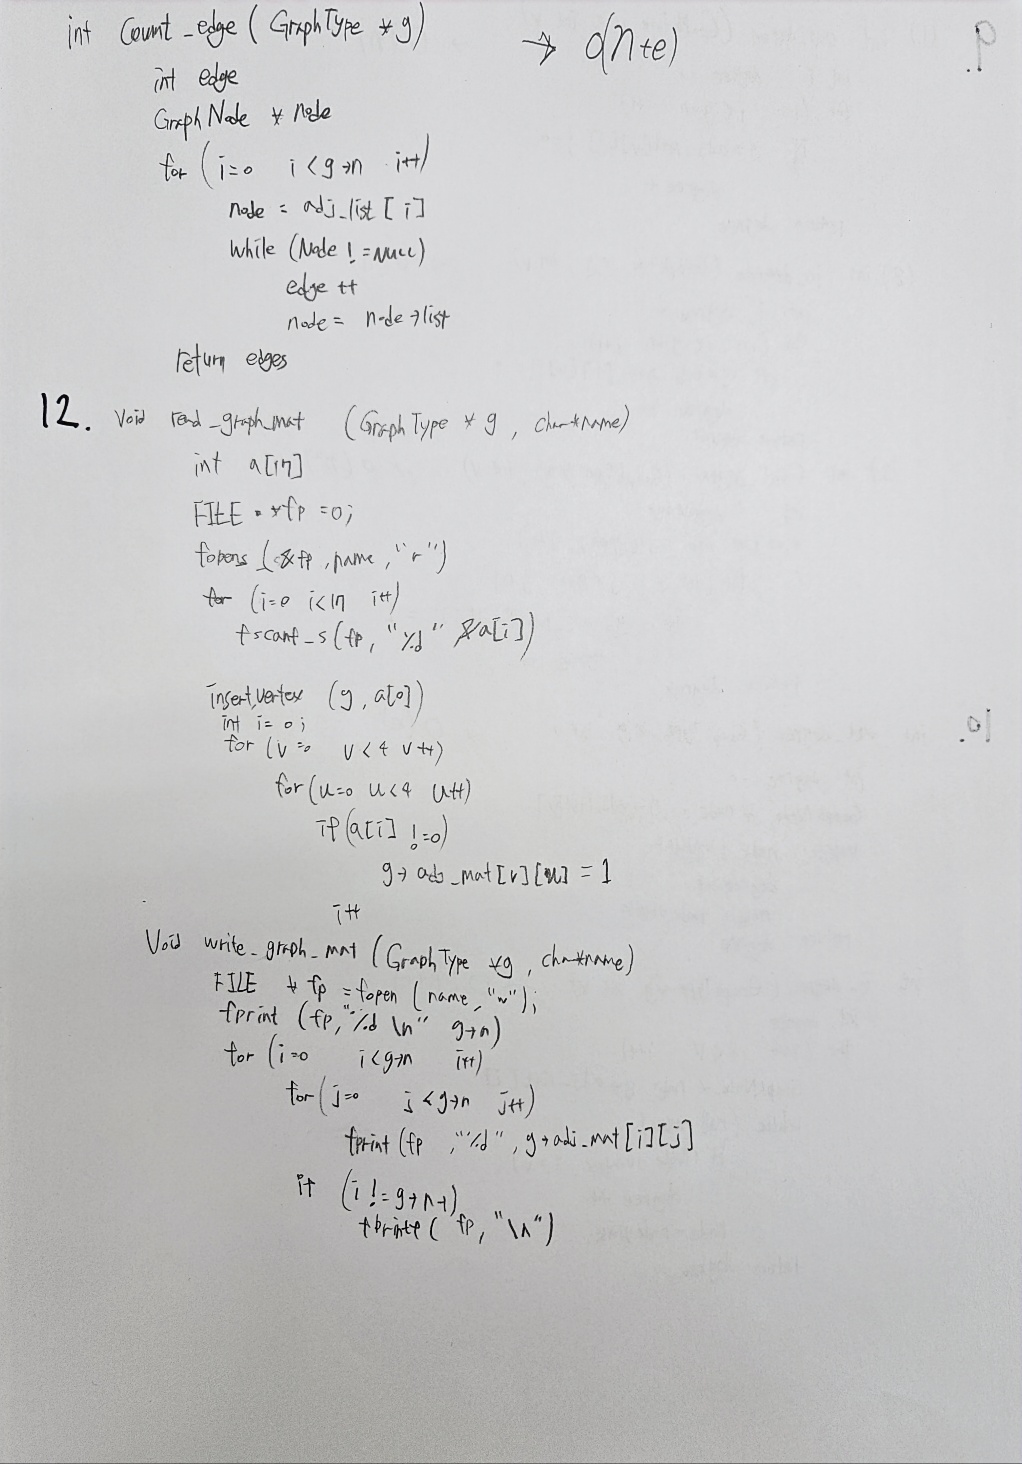 int Count_edge ( GraphType * g) → O(n+e)
int edge
GraphNode * node
for ( i=0 i < g→n i++)
node = adj_list [ i ]
while (Node != NULL)
edge ++
node = node → list
return edges
12. Void read_graph_mat (GraphType * g , char*name)
int a[17]
FILE *fp =0;
fopens (&fp , name , "r")
for (i=0 i<17 i++)
fscanf_s (fp, "%d" &a[i])
insert_vertex (g, a[0])
int i= 0;
for (v=0 v<4 v++)
for (u=0 u<4 u++)
if (a[i] !=0)
g→ adj_mat[v][u] = 1
i++
Void write_graph_mat (GraphType *g , char*name)
FILE * fp = fopen ( name, "w");
fprint (fp, "%d \n" g→n)
for (i=0 i<g→n i++)
for ( j=0 j <g→n j++)
fprint (fp , "%d" , g→adj_mat[i][j]
if (i != g→n-1)
fprintf ( fp, "\n")